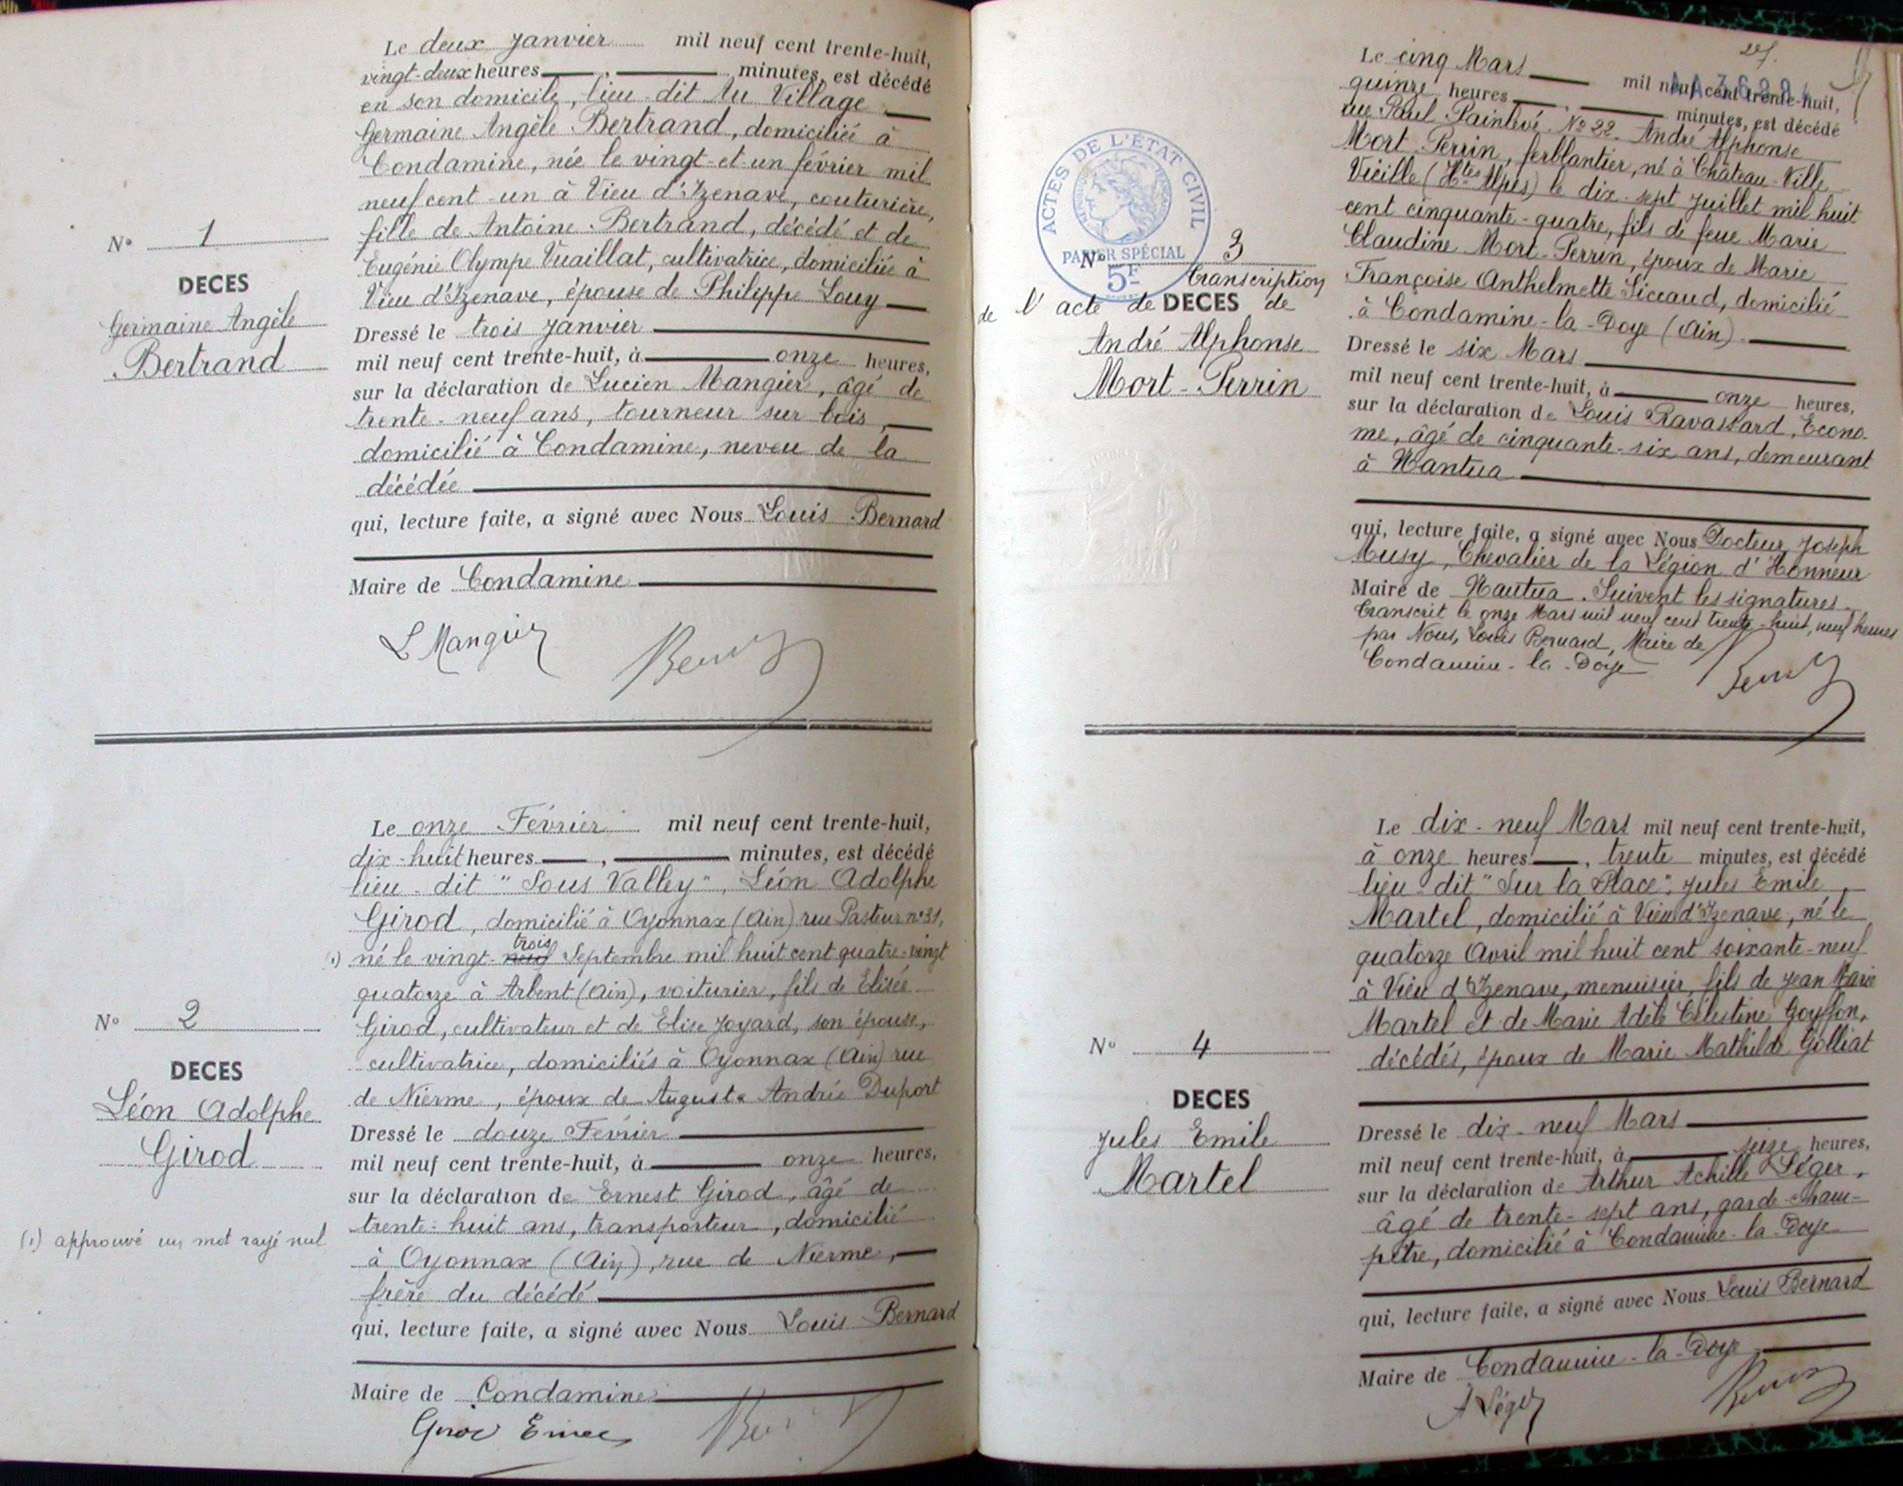 Le deux Janvier mil neuf cent trente-huit,
vingt-deux heures , minutes, est décédé
en son domicile, lieu-dit Au Village
Germaine Angèle Bertrand, domiciliée à
Condamine, née le vingt-et-un février mil
neuf cent-un à Vieu d'Izenave, couturière,
fille de Antoine Bertrand, décédé et de
Eugénie Olympe Vuaillat, cultivatrice, domiciliée à
Vieu d'Izenave, épouse de Philippe Louy
Dressé le trois Janvier
mil neuf cent trente-huit, à onze heures,
sur la déclaration de Lucien Mangier, âgé de
trente-neuf ans, tourneur sur bois,
domicilié à Condamine, neveu de la
décédée
qui, lecture faite, a signé avec Nous Louis Bernard
Maire de Condamine
L Mangier
N° 1
DECES
Germaine Angèle
Bertrand
Le onze Février mil neuf cent trente-huit,
dix-huit heures , minutes, est décédé
lieu-dit "Sous Valley", Léon Adolphe
Girod, domicilié à Oyonnax (Ain) rue Pasteur n°31,
(1) né le vingt-neuf trois Septembre mil huit cent quatre-vingt
quatorze à Arbent (Ain), voiturier, fils de Elisée
Girod, cultivateur et de Elise Joyard, son épouse,
cultivatrice, domiciliés à Oyonnax (Ain) rue
de Nierme, époux de Augusta Andrée Duport
Dressé le douze Février
mil neuf cent trente-huit, à onze heures,
sur la déclaration de Ernest Girod, âgé de
trente-huit ans, transporteur, domicilié
à Oyonnax (Ain), rue de Nierme,
frère du décédé
qui, lecture faite, a signé avec Nous Louis Bernard
Maire de Condamine
N° 2
DECES
Léon Adolphe
Girod
(1) approuvé un mot rayé nul
Le cinq Mars mil neuf cent trente-huit,
quinze heures , minutes, est décédé
rue Paul Painlevé N° 22 André Alphonse
Mort-Perrin, ferblantier, né à Château-Ville
Vieille (Htes Alpes) le dix-sept Juillet mil huit
cent cinquante-quatre, fils de feue Marie
Claudine Mort-Perrin, époux de Marie
Françoise Anthelmette Siccaud, domicilié
à Condamine-la-Doye (Ain).
Dressé le six Mars
mil neuf cent trente-huit, à onze heures,
sur la déclaration de Louis Ravassard, Econo-
me, âgé de cinquante-six ans, demeurant
à Nantua
qui, lecture faite, a signé avec Nous Docteur Joseph
Musy, Chevalier de la Légion d'Honneur
Maire de Nantua. Suivent les signatures.
Transcrit le onze Mars mil neuf cent trente-huit, neuf heures
par Nous, Louis Bernard, Maire de
Condamine-la-Doye
ACTES DE L'ÉTAT CIVIL
PAPIER SPÉCIAL
5F
N° 3
Transcription
de l'acte de DECES de
André Alphonse
Mort-Perrin
Le dix-neuf Mars mil neuf cent trente-huit,
à onze heures , trente minutes, est décédé
lieu-dit "Sur la Place", Jules Emile
Martel, domicilié à Vieu d'Izenave, né le
quatorze Avril mil huit cent soixante-neuf
à Vieu d'Izenave, menuisier, fils de Jean Marie
Martel et de Marie Adèle Célestine Goyffon,
décédés, époux de Marie Mathilde Golliat
Dressé le dix-neuf Mars
mil neuf cent trente-huit, à seize heures,
sur la déclaration de Arthur Achille Léger,
âgé de trente-sept ans, garde-cham-
pêtre, domicilié à Condamine-la-Doye
qui, lecture faite, a signé avec Nous Louis Bernard
Maire de Condamine-la-Doye
A Léger
N° 4
DECES
Jules Emile
Martel